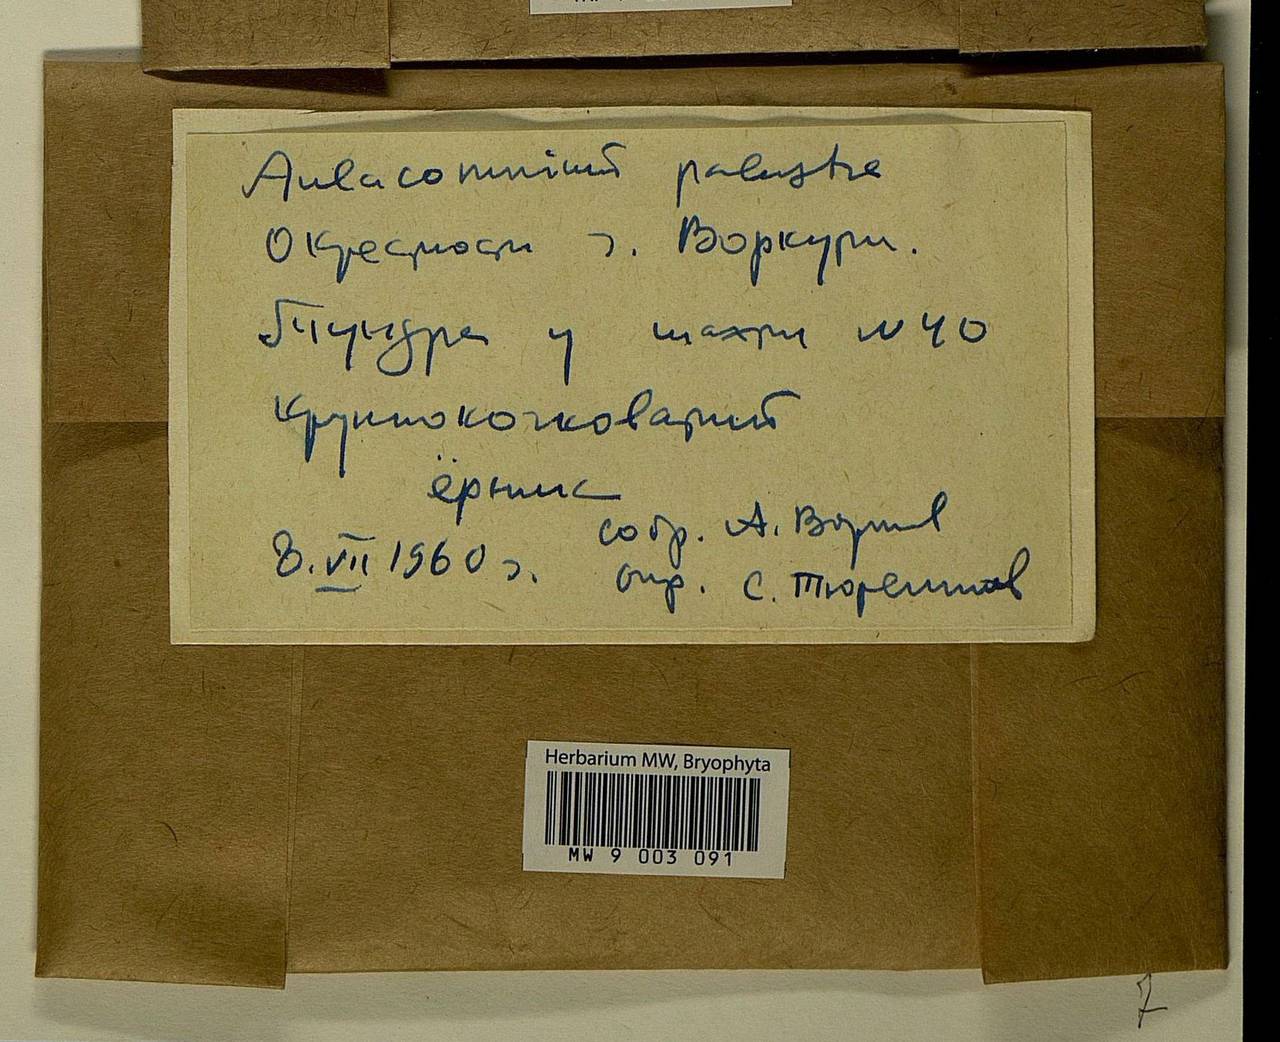 Aulacomnium palustre
Окрестности г. Воркуты.
Тундра у шахты N 40
крупнокочковатый
ёрник
8.VII 1960 г. собр. А.
опр. С. Тюремнов
Herbarium MW, Bryophyta
MW 9 003 091
7